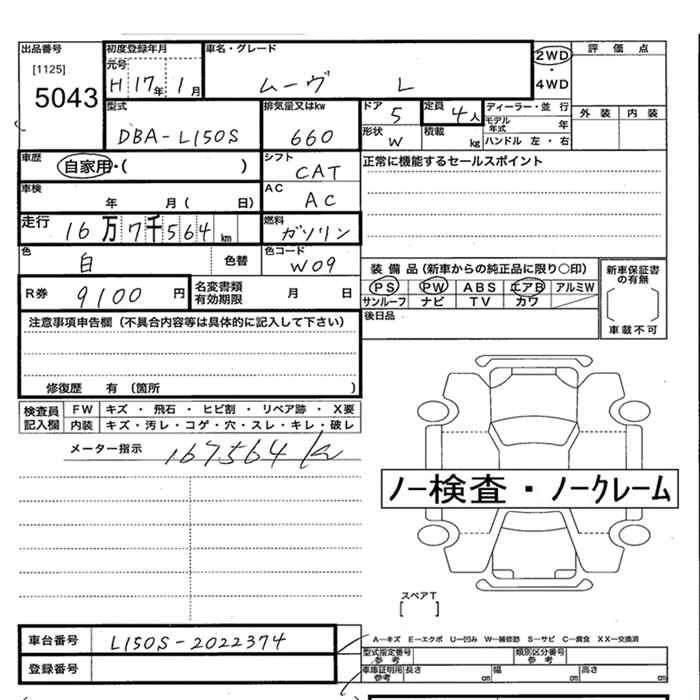 出品番号 初度登録年月 車名・グレード 2WD 評価点
[1125] 元号 ・
5043 H 17年 1月 ムーヴ L 4WD
型式 排気量又はkw ドア 定員 ディーラー・並行 外装 内装
DBA-L150S 660 5 4人 モデル年式 年
形状 W 積載 kg ハンドル 左・右
車歴 自家用・( ) シフト CAT 正常に機能するセールスポイント
車検 年 月( 日) AC AC
走行 16万7千564km 燃料 ガソリン
色 白 色替 色コード W09
R券 9100円 名変書類有効期限 月 日
装備品(新車からの純正品に限り○印) 新車保証書の有無
PS PW ABS エアB アルミW
サンルーフ ナビ TV カワ 車載不可
後日品
注意事項申告欄(不具合内容等は具体的に記入して下さい)
修復歴 有(箇所 )
検査員記入欄 FW キズ・飛石・ヒビ割・リペア跡・X要
内装 キズ・汚レ・コゲ・穴・スレ・キレ・破レ
メーター指示 167564K
ノー検査・ノークレーム
スペアT
[ ]
車台番号 L150S-2022374
A−キズ E−エクボ U−凹み W−補修跡 S−サビ C−腐食 XX−交換済
型式指定番号 参考 類別区分番号 参考
登録番号 車庫証明用参考 長さ cm 幅 cm 高さ cm